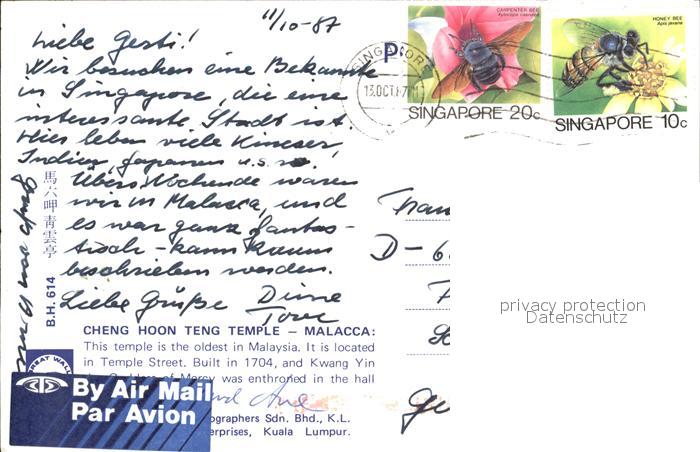 11/10-87
Liebe Gesti!
Wir besuchen eine Bekannte
in Singapore, die eine
interessante Stadt ist.
Hier leben viele Kineser
Indier, Japaner u.s.w.
Übers Wochende waren
wir in Malacca, und
es war ganz fantas-
tisch - kann kaum
beschrieben werden.
Liebe Grüße Deine
Tove
馬六呷青雲亭
B.H. 614
CHENG HOON TENG TEMPLE – MALACCA:
This temple is the oldest in Malaysia. It is located
in Temple Street. Built in 1704, and Kwang Yin
the Goddess of Mercy was enthroned in the hall
GREAT WALL
By Air Mail
Par Avion
ographers Sdn. Bhd., K.L.
erprises, Kuala Lumpur.
CARPENTER BEE
SINGAPORE 20c
HONEY BEE
Apis javana
SINGAPORE 10c
SINGAPORE
13 OCT 87
P
D-6
privacy protection
Datenschutz